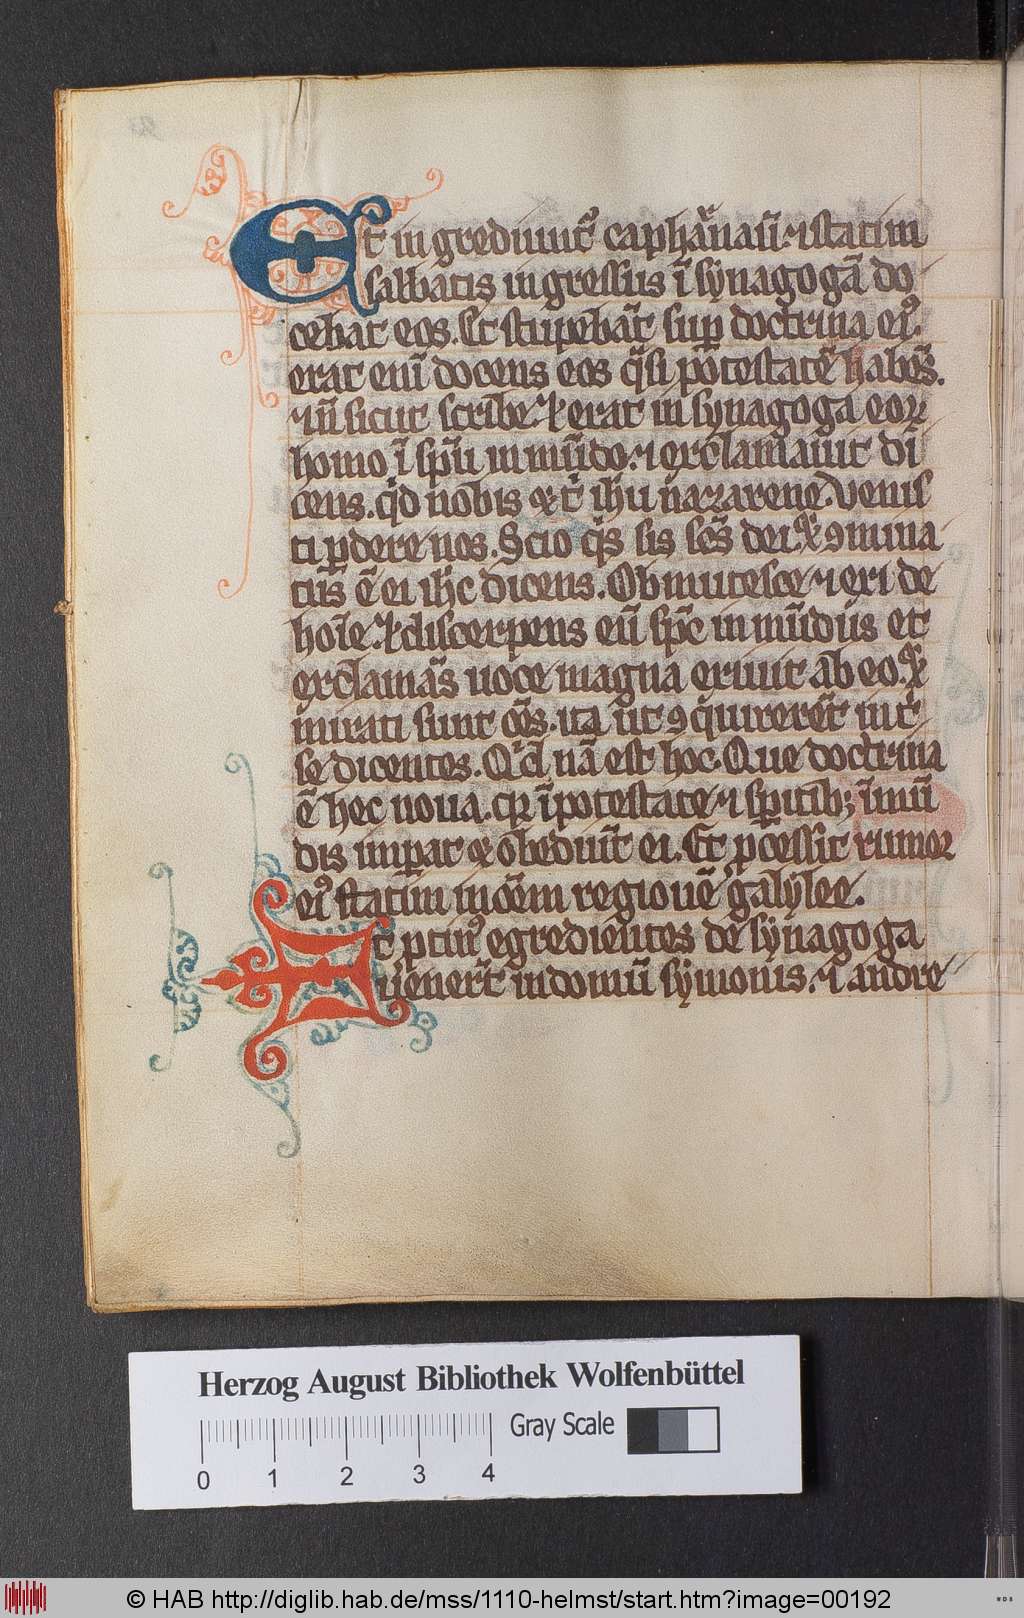 Et ingrediunt᷒ caphᷓnaū. ⁊ statim
sabbatis ingressus ī synagogā do
cebat eos. Et stupebāt sup̱ doctrina ei᷒.
erat enī docens eos q̄si potestatē habēs.
⁊ nō sicut scribe. Et erat in synagoga eoꝝ
homo ī sp̄u inmūdo. ⁊ exclamauit di
cens. qͥd nobis et tͥ ih̄u nazarene. venis
ti ꝑdere nos. Scio qͥs sis sc̄s dei. Et ꝯmina
tus ē ei ih̄c dicens. Obmutesce ⁊ exi de
hoīe. Et discerpens eū sp̄c inmūdus et
exclamās uoce magna exiuit ab eo. Et
mirati sunt oēs. ita ut ꝯquirerēt int̄
se dicentes. Qͥd nā est hoc. Que doctrina
ē hec noua. qꝛ ī potestate ⁊ sp̄ritibꝫ īmū
dis imꝑat et obediūt ei. Et ꝓcessit rumor
ei᷒ statim in oēm regionē galylee.
Et ꝓtin᷒ egredientes de synagoga
uenerūt in domū symonis. ⁊ andre
Herzog August Bibliothek Wolfenbüttel
Gray Scale
0 1 2 3 4
© HAB http://diglib.hab.de/mss/1110-helmst/start.htm?image=00192